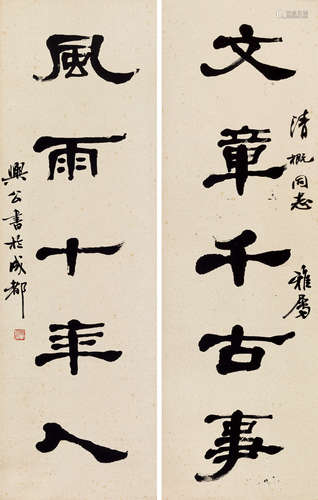 文章千古事
清概同志 雅属
風雨十年人
興公書於成都